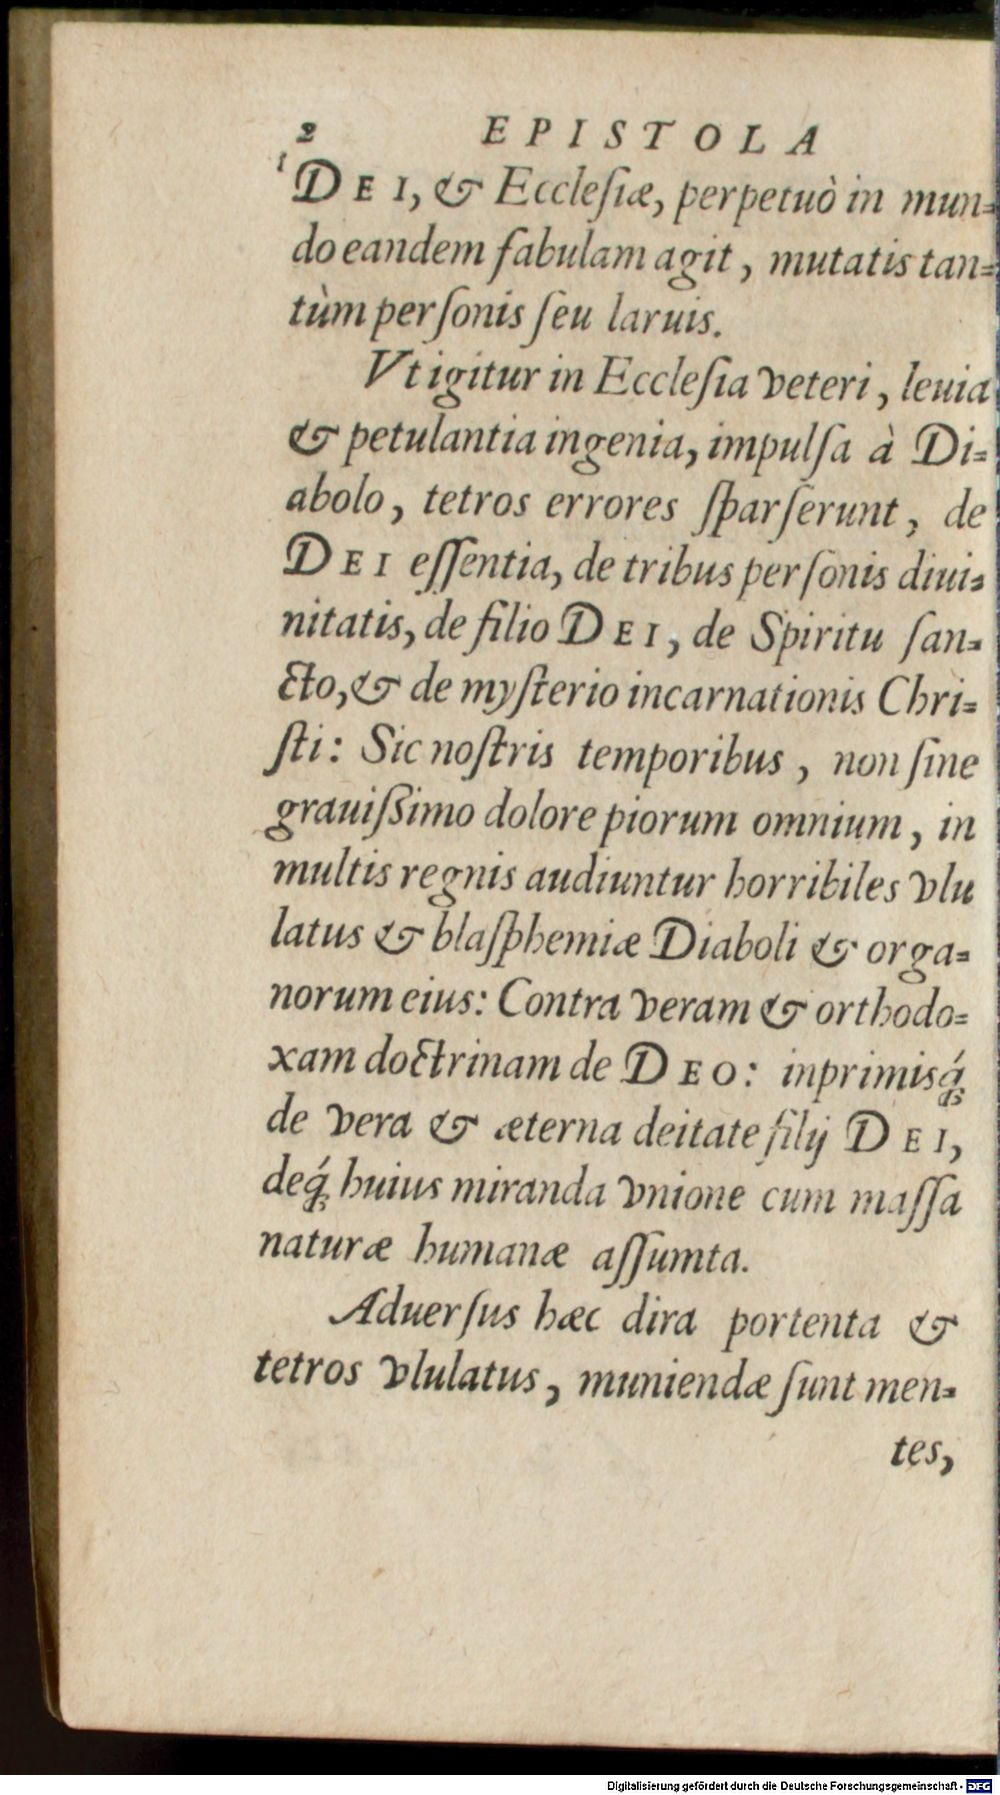 2 EPISTOLA
DEI, & Ecclesiæ, perpetuò in mun=
do eandem fabulam agit, mutatis tan=
tùm personis seu laruis.
Vt igitur in Ecclesia veteri, leuia
& petulantia ingenia, impulsa à Di=
abolo, tetros errores sparserunt, de
DEI essentia, de tribus personis diui=
nitatis, de filio DEI, de Spiritu san=
cto, & de mysterio incarnationis Chri=
sti: Sic nostris temporibus, non sine
grauißimo dolore piorum omnium, in
multis regnis audiuntur horribiles vlu
latus & blasphemiæ Diaboli & orga=
norum eius: Contra veram & orthodo=
xam doctrinam de DEO: inprimisq́;
de vera & æterna deitate filij DEI,
deq́; huius miranda vnione cum massa
naturæ humanæ assumta.
Aduersus hæc dira portenta &
tetros vlulatus, muniendæ sunt men=
tes,
Digitalisierung gefördert durch die Deutsche Forschungsgemeinschaft - DFG